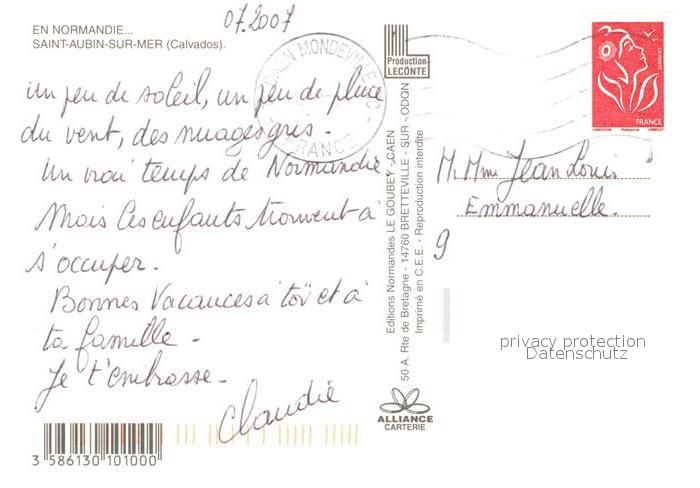 07.2007
EN NORMANDIE...
SAINT-AUBIN-SUR-MER (Calvados).
Un peu de soleil, un peu de pluie
du vent, des nuages gris.
Un vrai temps de Normandie
Mais les enfants trouvent à
s'occuper.
Bonnes Vacances à toi et à
ta famille.
Je t'embrasse.
Claudie
3 586130 101000
CAEN MONDEVILLE
FRANCE
Production
LECONTE
Editions Normandes LE GOUBEY - CAEN
50 A, Rte de Bretagne - 14760 BRETTEVILLE - SUR - ODON
Imprimé en C.E.E. - Reproduction interdite
ALLIANCE
CARTERIE
LA POSTE
FRANCE
M. Mme Jean Louis
Emmanuelle.
9
privacy protection
Datenschutz